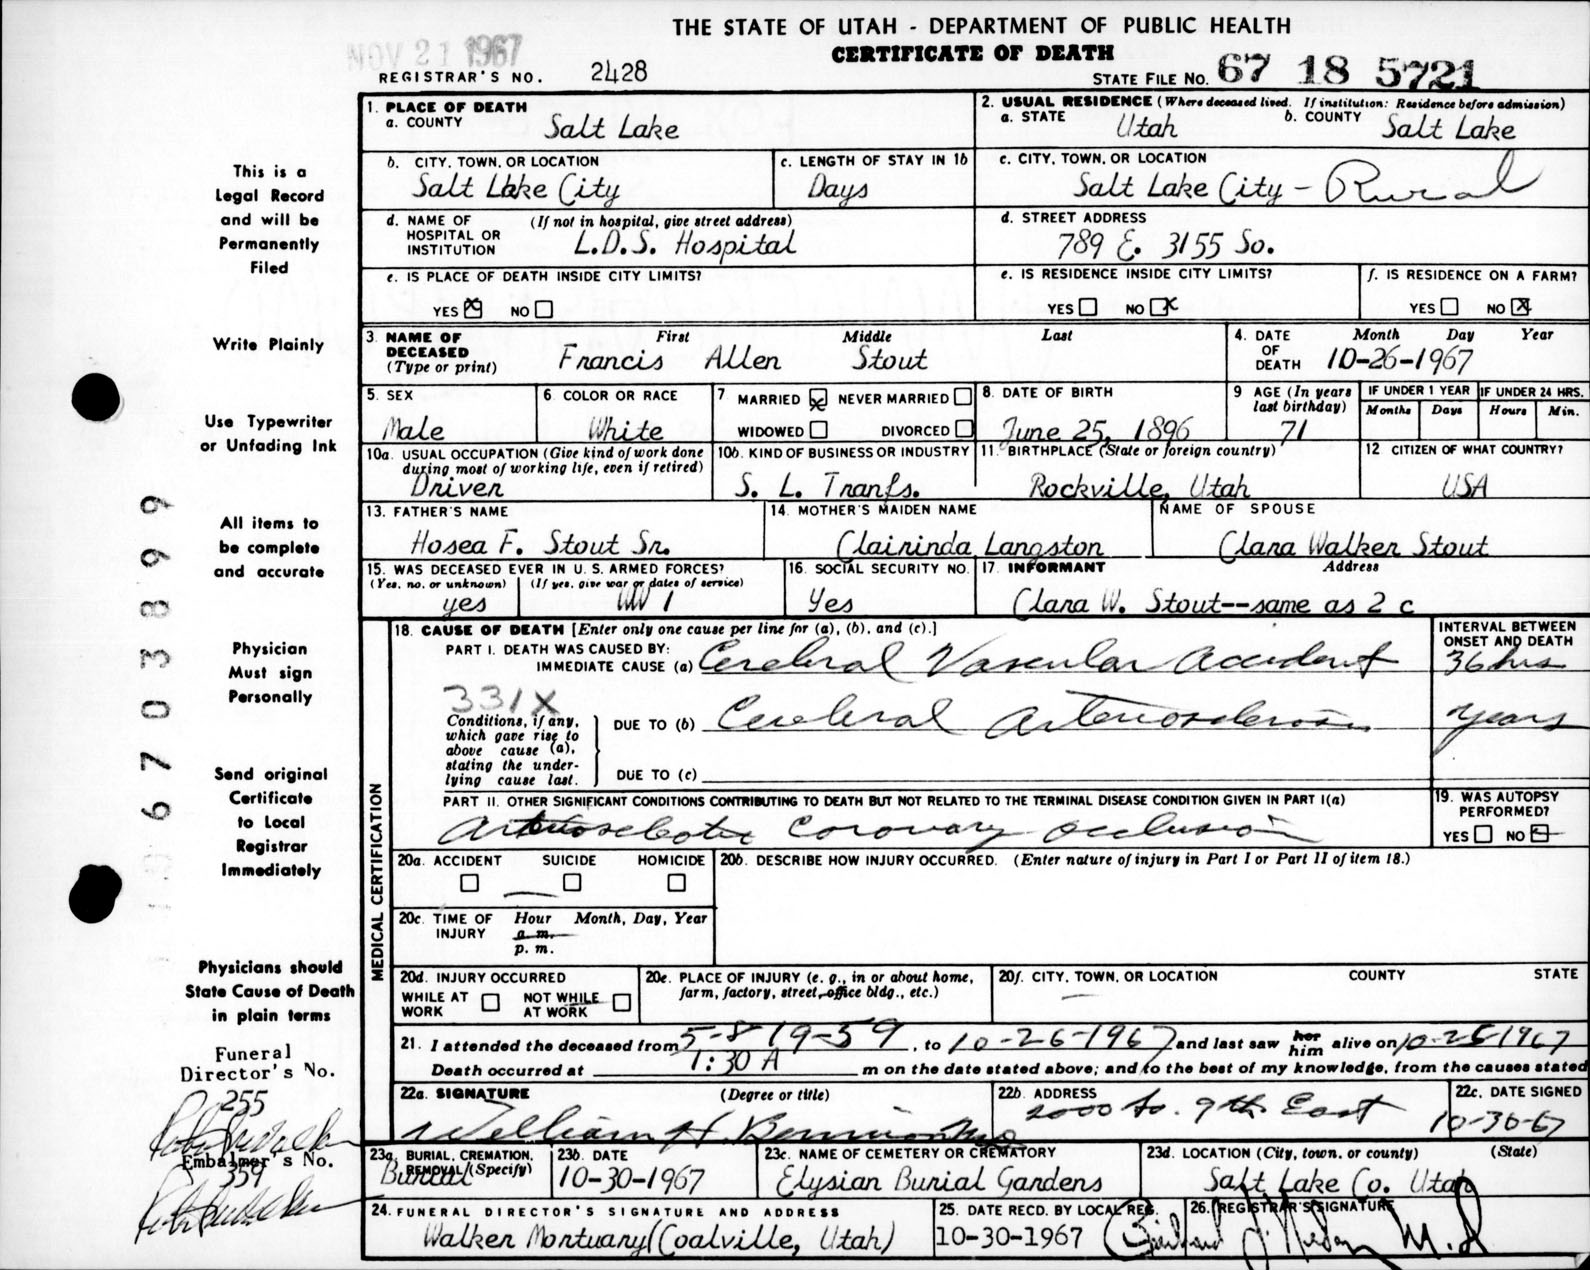 THE STATE OF UTAH - DEPARTMENT OF PUBLIC HEALTH
CERTIFICATE OF DEATH
NOV 21 1967
REGISTRAR'S NO. 2428
STATE FILE NO. 67 18 5721
1. PLACE OF DEATH
a. COUNTY Salt Lake
2. USUAL RESIDENCE (Where deceased lived. If institution: Residence before admission)
a. STATE Utah b. COUNTY Salt Lake
b. CITY, TOWN, OR LOCATION Salt Lake City
c. LENGTH OF STAY IN 1b Days
c. CITY, TOWN, OR LOCATION Salt Lake City - Rural
d. NAME OF HOSPITAL OR INSTITUTION (If not in hospital, give street address) L.D.S. Hospital
d. STREET ADDRESS 789 E. 3155 So.
e. IS PLACE OF DEATH INSIDE CITY LIMITS?
YES X NO
e. IS RESIDENCE INSIDE CITY LIMITS?
YES NO X
f. IS RESIDENCE ON A FARM?
YES NO X
3. NAME OF DECEASED (Type or print) First Middle Last
Francis Allen Stout
4. DATE OF DEATH Month Day Year
10-26-1967
5. SEX Male
6. COLOR OR RACE White
7 MARRIED X NEVER MARRIED
WIDOWED DIVORCED
8. DATE OF BIRTH June 25, 1896
9 AGE (In years last birthday) 71
IF UNDER 1 YEAR Months Days
IF UNDER 24 HRS. Hours Min.
10a. USUAL OCCUPATION (Give kind of work done during most of working life, even if retired) Driver
10b. KIND OF BUSINESS OR INDUSTRY S. L. Tranfs.
11. BIRTHPLACE (State or foreign country) Rockville, Utah
12 CITIZEN OF WHAT COUNTRY? USA
13. FATHER'S NAME Hosea F. Stout Sr.
14. MOTHER'S MAIDEN NAME Claininda Langston
NAME OF SPOUSE Clara Walker Stout
15. WAS DECEASED EVER IN U.S. ARMED FORCES?
(Yes, no, or unknown) (If yes, give war or dates of service)
yes WW 1
16. SOCIAL SECURITY NO. Yes
17. INFORMANT Address
Clara W. Stout--same as 2 c
MEDICAL CERTIFICATION
18. CAUSE OF DEATH [Enter only one cause per line for (a), (b), and (c).]
INTERVAL BETWEEN ONSET AND DEATH
PART I. DEATH WAS CAUSED BY:
IMMEDIATE CAUSE (a) Cerebral Vascular Accident 36 hrs
331X
Conditions, if any, which gave rise to above cause (a), stating the underlying cause last.
DUE TO (b) Cerebral Arteriosclerosis years
DUE TO (c)
PART II. OTHER SIGNIFICANT CONDITIONS CONTRIBUTING TO DEATH BUT NOT RELATED TO THE TERMINAL DISEASE CONDITION GIVEN IN PART I(a)
Arteriosclerotic Coronary Occlusion
19. WAS AUTOPSY PERFORMED?
YES NO
20a. ACCIDENT SUICIDE HOMICIDE
20b. DESCRIBE HOW INJURY OCCURRED. (Enter nature of injury in Part I or Part II of item 18.)
20c. TIME OF INJURY Hour Month, Day, Year
a.m.
p.m.
20d. INJURY OCCURRED
WHILE AT WORK NOT WHILE AT WORK
20e. PLACE OF INJURY (e. g., in or about home, farm, factory, street, office bldg., etc.)
20f. CITY, TOWN, OR LOCATION COUNTY STATE
21. I attended the deceased from 5-8 19-59, to 10-26-1967 and last saw her him alive on 10-25-1967
Death occurred at 1:30 A m on the date stated above; and to the best of my knowledge, from the causes stated
22a. SIGNATURE (Degree or title)
William H. Bennion MD
22b. ADDRESS 2000 So. 9th East
22c. DATE SIGNED 10-30-67
23a. BURIAL, CREMATION, REMOVAL (Specify) Burial
23b. DATE 10-30-1967
23c. NAME OF CEMETERY OR CREMATORY Elysian Burial Gardens
23d. LOCATION (City, town, or county) (State)
Salt Lake Co. Utah
24. FUNERAL DIRECTOR'S SIGNATURE AND ADDRESS
Walker Mortuary (Coalville, Utah)
25. DATE RECD. BY LOCAL REG. 10-30-1967
26. REGISTRAR'S SIGNATURE
This is a
Legal Record
and will be
Permanently
Filed
Write Plainly
Use Typewriter
or Unfading Ink
All items to
be complete
and accurate
Physician
Must sign
Personally
Send original
Certificate
to Local
Registrar
Immediately
Physicians should
State Cause of Death
in plain terms
Funeral
Director's No.
255
Embalmer's No.
359
6703899